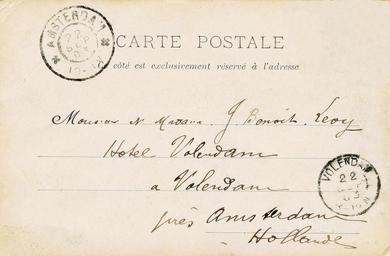 AMSTERDAM
CARTE POSTALE
côté est exclusivement réservé à l'adresse
Monsieur et Madame J. Benoit-Levy
Hotel Volendam
VOLENDAM
22
a Volendam
près Amsterdam
Hollande